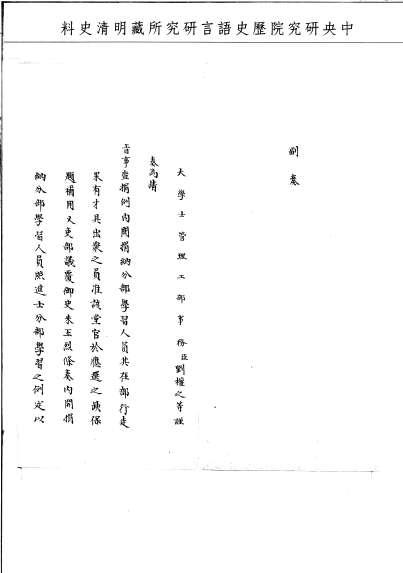 中央研究院歷史語言研究所藏明清史料
副奏
大學士管理工部事務臣劉權之等謹
奏為請
旨事查捐例內開捐納分部學習人員其在部行走
果有才具出衆之員准該堂官於應選之缺保
題補用又吏部議覆御史朱玉烈條奏內開捐
納分部學習人員照進士分部學習之例定以